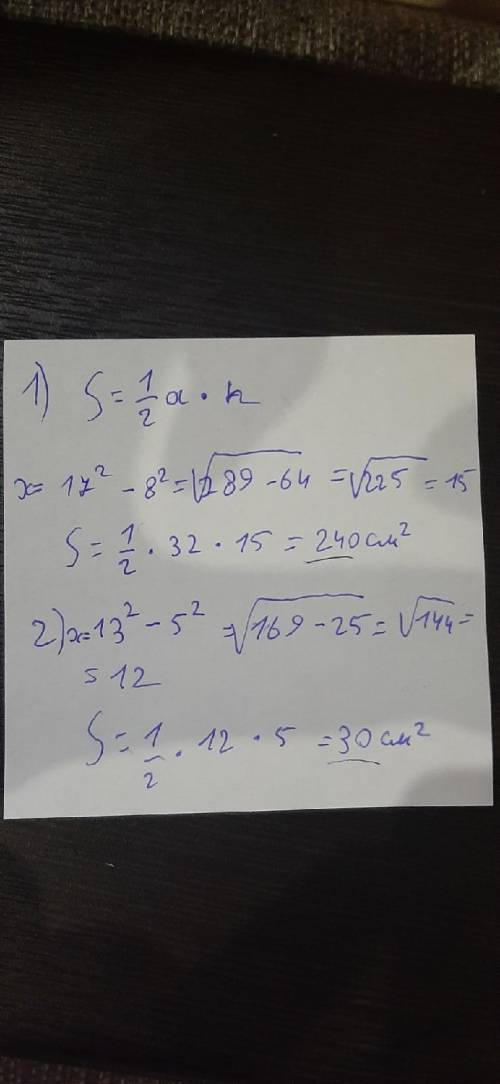 1) S = 1/2 a · h
x = 17² - 8² = √289 - 64 = √225 = 15
S = 1/2 · 32 · 15 = 240 см²
2) x = 13² - 5² = √169 - 25 = √144 =
= 12
S = 1/2 · 12 · 5 = 30 см²